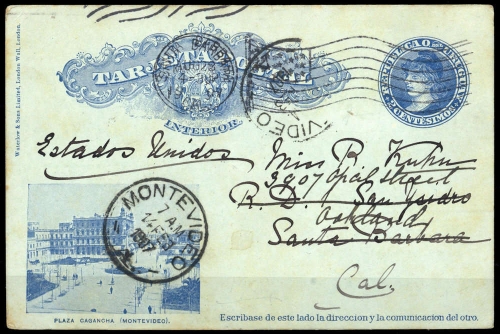 Waterlow & Sons Limited, London Wall, London.
TARJETA POSTAL
INTERIOR
2 CENTÉSIMOS
VIDEO
Estados Unidos
Miss R. Kuhn
3907 Opal street
R. D. San Ysidro
Oakland
Santa Barbara
Cal.
MONTEVIDEO
7 AM
1907
PLAZA CAGANCHA (MONTEVIDEO).
Escribase de este lado la direccion y la comunicacion del otro.